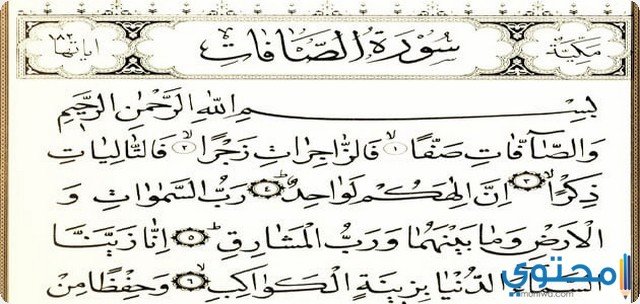 مكية سورة الصافات اياتها ١٨٢
بسم الله الرحمن الرحيم
والصآفات صفًا ١ فالزاجرات زجرًا ٢ فالتاليات
ذكرًا ٣ ان الهكم لواحد ٤ رب السموات و
الارض وما بينهما ورب المشارق ٥ انا زينا
السماء الدنيا بزينة الكواكب ٦ وحفظًا من
محتوى